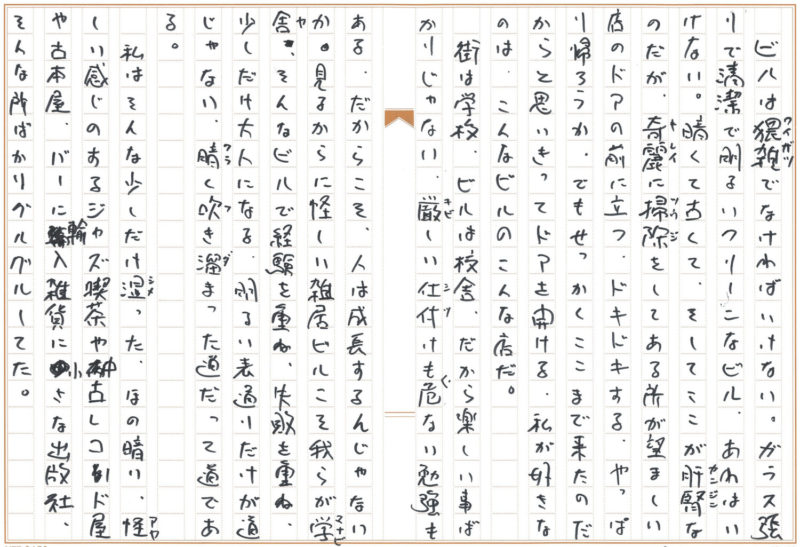 ビルは猥雑でなければいけない。ガラス張
りで清潔で明るいツリーンなビル、あれはい
けない。暗くて古くて、そしてここが肝腎な
のだが、奇麗に掃除をしてある所が望ましい
店のドアの前に立つ、ドキドキする、やっぱ
り帰ろうか、でもせっかくここまで来たのだ
からと思いきってドアを開ける、私が好きな
のは、こんなビルのこんな店だ。
街は学校、ビルは校舎、だから楽しい事ば
かりじゃない、厳しい仕付けも危ない勉強も
ある、だからこそ、人は成長するんじゃない
か。見るからに怪しい雑居ビルこそ我らが学
舎、そんなビルで経験を重ね、失敗を重ね、
少しだけ大人になる、明るい表通りだけが道
じゃない、暗く吹き溜まった道だって道であ
る。
私はそんな少しだけ湿った、ほの暗い、怪
しい感じのあるジャズ喫茶や中古レコード屋
や古本屋、バーに輸入雑貨に小さな出版社、
そんな所ばかりグルグルしてた。